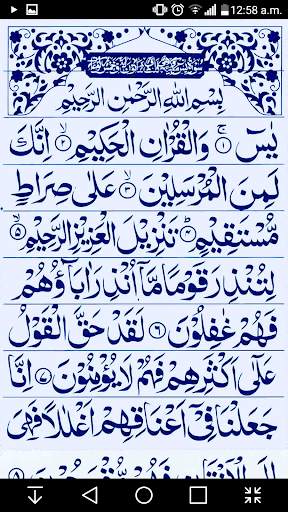 12:58 a.m.
بِسْمِ اللّٰهِ الرَّحْمٰنِ الرَّحِيْمِ
يٰسٓ ۚ ۝۱ وَالْقُرْاٰنِ الْحَكِيْمِ ۙ ۝۲ اِنَّكَ
لَمِنَ الْمُرْسَلِيْنَ ۙ ۝۳ عَلٰى صِرَاطٍ
مُّسْتَقِيْمٍ ؕ ۝۴ تَنْزِيْلَ الْعَزِيْزِ الرَّحِيْمِ ۙ ۝۵
لِتُنْذِرَ قَوْمًا مَّاۤ اُنْذِرَ اٰبَآؤُهُمْ
فَهُمْ غٰفِلُوْنَ ۝۶ لَقَدْ حَقَّ الْقَوْلُ
عَلٰٓى اَكْثَرِهِمْ فَهُمْ لَا يُؤْمِنُوْنَ ۝۷ اِنَّا
جَعَلْنَا فِىْۤ اَعْنَاقِهِمْ اَغْلٰلًا فَهِىَ